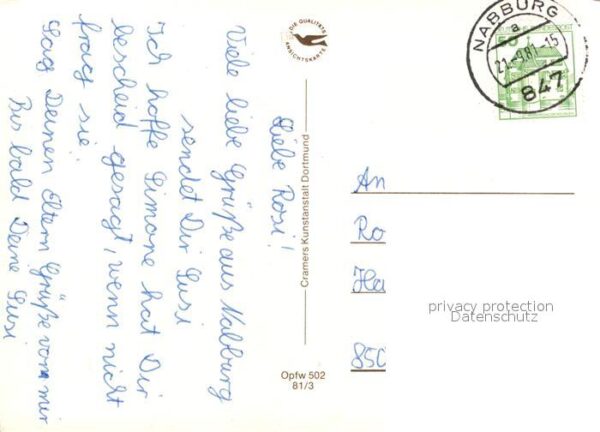 Liebe Rosi!
Viele liebe Grüße aus Nabburg
sendet Dir Susi
Ich hoffe Simone hat Dir
bescheid gesagt, wenn nicht
frag sie!
Sag Deinen Eltern Grüße von mir
Bis bald Deine Susi
DIE QUALITÄTS
ANSICHTSKARTE
Cramers Kunstanstalt Dortmund
Opfw 502
81/3
NABBURG
a
21.-9.81.-15
847
50
An
Ro
Ha
850
privacy protection
Datenschutz